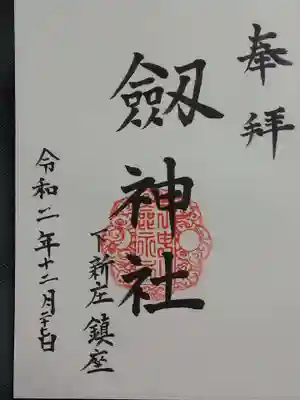 奉拝
劔神社
下新庄鎮座
令和二年十二月二十七日